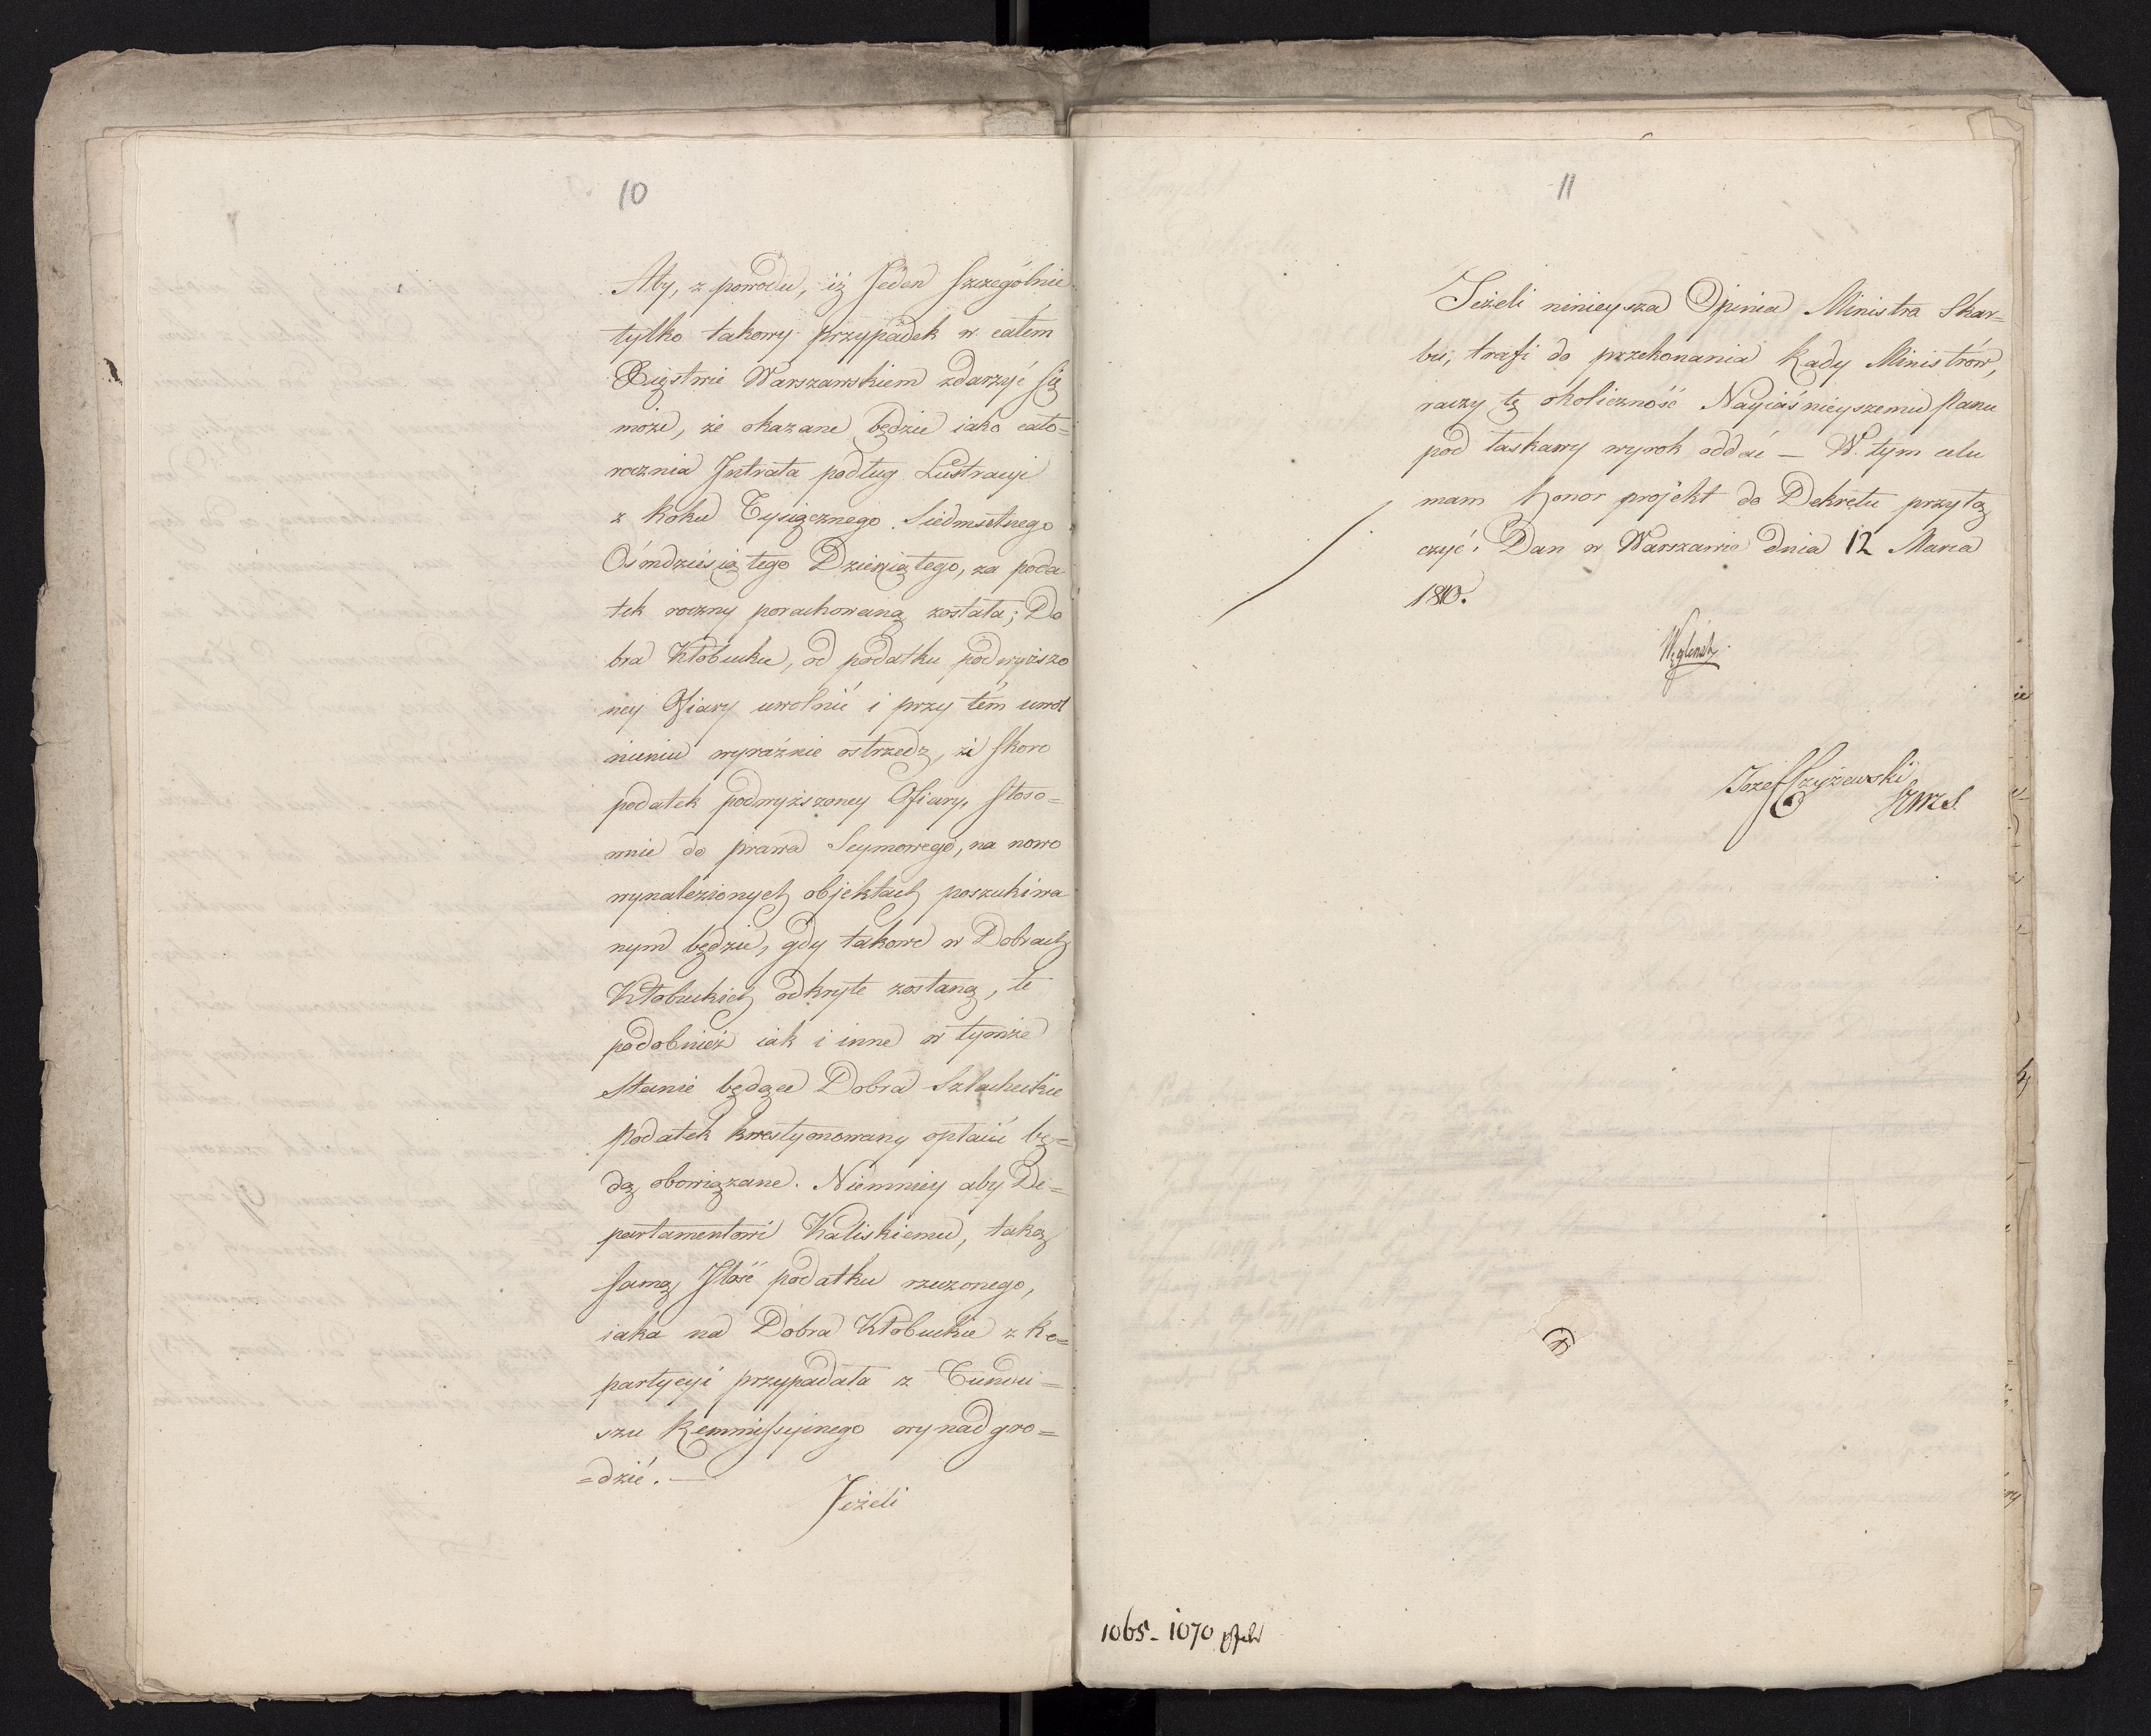 10
Aby, z powodu, iż Jeden szczególnie
tylko takowy przypadek w całem
Xięstwie Warszawskiem zdarzyć się
może, że okazane będzie iako cało=
rocznia Intrata podług Lustracyi
z Roku Tysiącznego Siedmsetnego
Ośmdziesiątego Dziewiątego, za poda-
tek roczny porachowaną została; Do
bra Kłobuckie, od podatku podwyższo
ney Ofiary uwolnić i przy tém uwol
nieniu wyraźnie ostrzedz, że skoro
podatek podwyższoney Ofiary, stoso=
wnie do prawa Seymowego, na nowo
wynalezionych objektach poszukiwa
nym będzie, gdy takowe w Dobrach
Kłobuckich odkryte zostaną, te
podobnież iak i inne w tymże
stanie będące Dobra Szlacheckie
podatek kwestyonowany opłacić bę=
dą obowiązane. Niemniey aby De=
partamentowi Kaliskiemu, taką
samą Ilość podatku rzeczonego,
iaka na Dobra Kłobuckie z Re=
partycyi przypadała z Fundu=
szu Kommissyinego wynadgro=
=dzić. —
Jeżeli
11
Jeżeli ninieysza Opinia Ministra Skar=
bu, trafi do przekonania Rady Ministrów,
raczy tę okoliczność Nayiaśnieyszemu Panu
pod łaskawy wyrok oddać — W tym celu
mam honor projekt do Dekretu przyłą
czyć. Dan w Warszawie dnia 12 Marca
1810.
Węgleński
Jozef Czyżewski
1065-1070